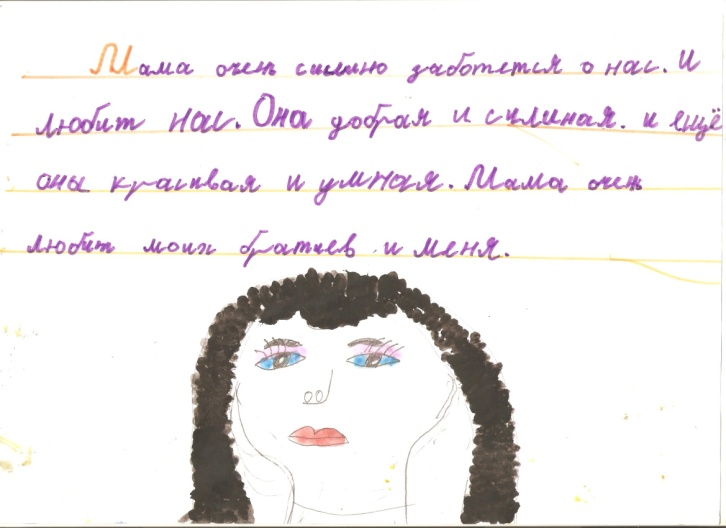 Мама очень силино заботется о нас. И
любит нас. Она добрая и силиная. и ещё
оны красивая и умная. Мама очень
любит моих братиев и меня.